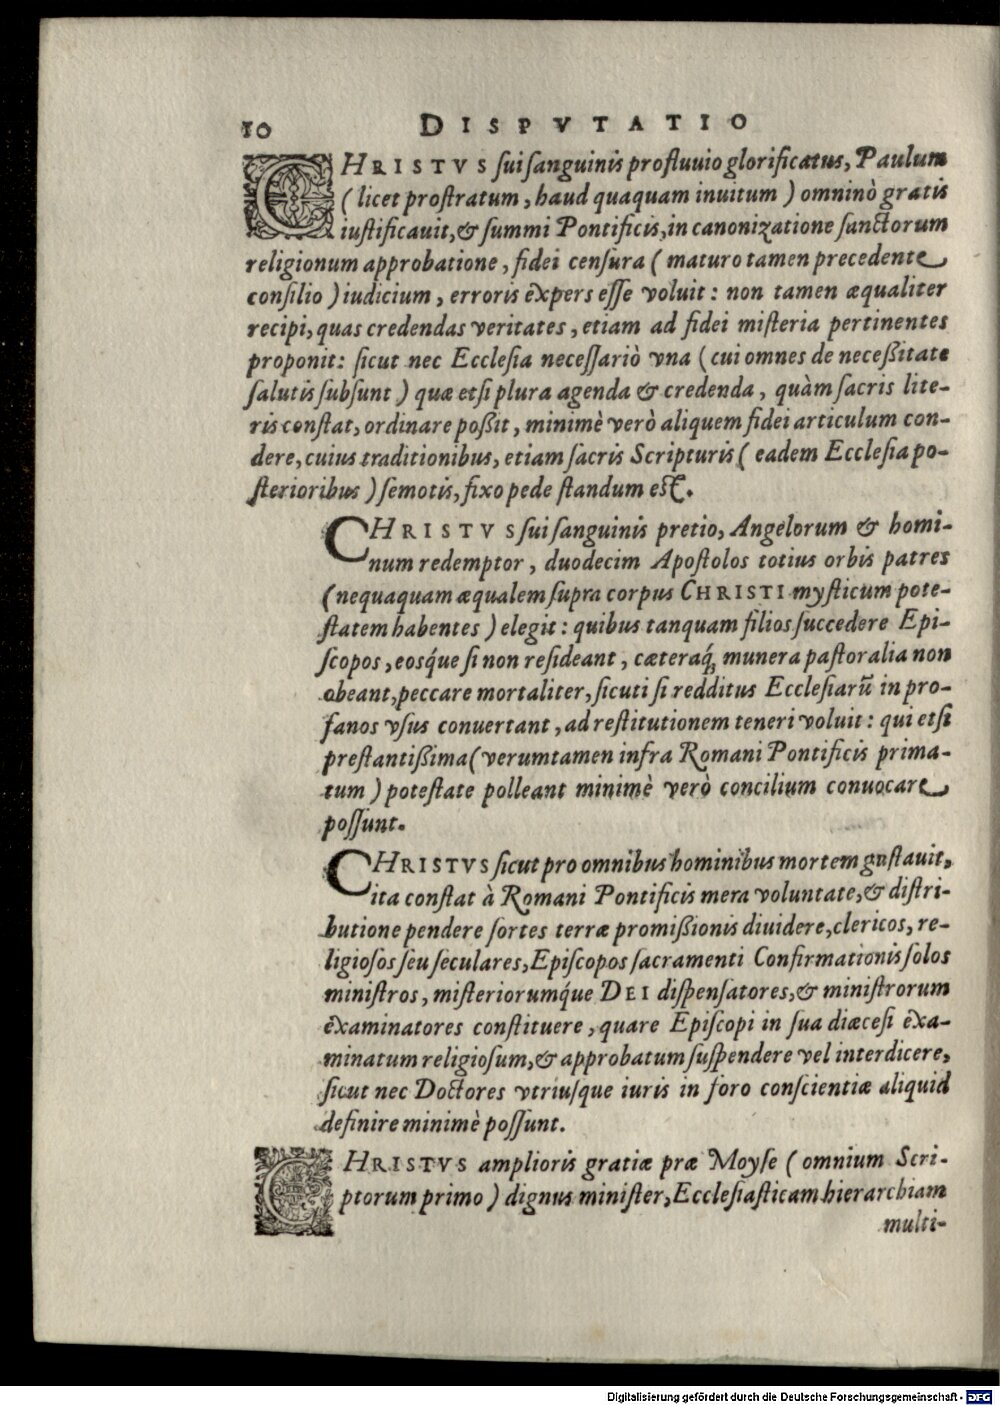 10 DISPVTATIO
CHRISTVS sui sanguinis profluuio glorificatus, Paulum
(licet prostratum, haud quaquam inuitum) omninò gratis
iustificauit, & summi Pontificis, in canonizatione sanctorum
religionum approbatione, fidei censura (maturo tamen precedente
consilio) iudicium, erroris expers esse voluit: non tamen æqualiter
recipi, quas credendas veritates, etiam ad fidei misteria pertinentes
proponit: sicut nec Ecclesia necessariò vna (cui omnes de necessitate
salutis subsunt) quæ etsi plura agenda & credenda, quàm sacris lite-
ris constat, ordinare possit, minimè verò aliquem fidei articulum con-
dere, cuius traditionibus, etiam sacris Scripturis (eadem Ecclesia po-
sterioribus) semotis, fixo pede standum est.
CHRISTVS sui sanguinis pretio, Angelorum & homi-
num redemptor, duodecim Apostolos totius orbis patres
(nequaquam æqualem supra corpus CHRISTI mysticum pote-
statem habentes) elegit: quibus tanquam filios succedere Epi-
scopos, eosq́ue si non resideant, cæteraq́; munera pastoralia non
obeant, peccare mortaliter, sicuti si redditus Ecclesiarū in pro-
fanos vsus conuertant, ad restitutionem teneri voluit: qui etsi
prestantissima (verumtamen infra Romani Pontificis prima-
tum) potestate polleant minimè verò concilium conuocare
possunt.
CHRISTVS sicut pro omnibus hominibus mortem gustauit,
ita constat à Romani Pontificis mera voluntate, & distri-
butione pendere sortes terræ promissionis diuidere, clericos, re-
ligiosos seu seculares, Episcopos sacramenti Confirmationis solos
ministros, misteriorumq́ue DEI dispensatores, & ministrorum
examinatores constituere, quare Episcopi in sua diæcesi exa-
minatum religiosum, & approbatum suspendere vel interdicere,
sicut nec Doctores vtriusque iuris in foro conscientiæ aliquid
definire minimè possunt.
CHRISTVS amplioris gratiæ præ Moyse (omnium Scri-
ptorum primo) dignus minister, Ecclesiasticam hierarchiam
multi-
Digitalisierung gefördert durch die Deutsche Forschungsgemeinschaft - DFG